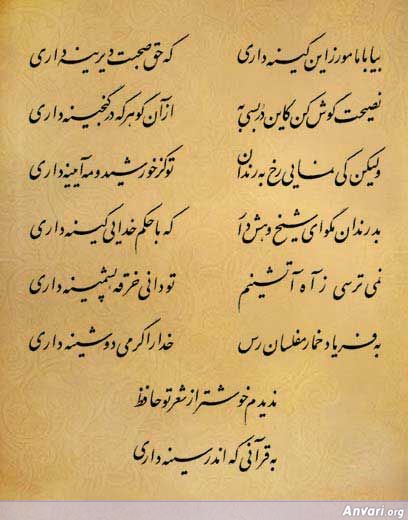 بیا با ما مورز این کینه داری که حق صحبت دیرینه داری
نصیحت گوش کن کاین در بسی به از آن گوهر که در گنجینه داری
ولیکن کی نمایی رخ به رندان تو کز خورشید و مه آیینه داری
بد رندان مگو ای شیخ و هش دار که با حکم خدایی کینه داری
نمی ترسی ز آه آتشینم تو دانی خرقه پشمینه داری
به فریاد خمار مفلسان رس خدا را گر می دوشینه داری
ندیدم خوشتر از شعر تو حافظ
به قرآنی که اندر سینه داری
Anvari.org